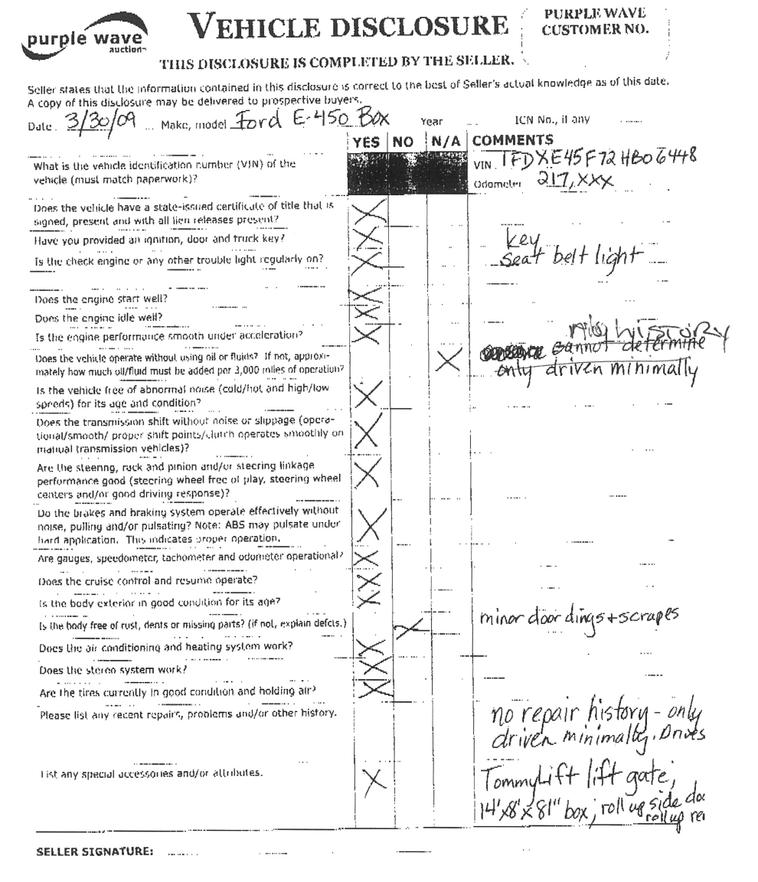 purple wave
auction™
VEHICLE DISCLOSURE
PURPLE WAVE
CUSTOMER NO.
THIS DISCLOSURE IS COMPLETED BY THE SELLER.
Seller states that the information contained in this disclosure is correct to the best of Seller's actual knowledge as of this date.
A copy of this disclosure may be delivered to prospective buyers.
Date 3/30/09 Make, model Ford E-450 Box Year ICN No., if any
YES NO N/A COMMENTS
What is the vehicle identification number (VIN) of the VIN 1FDXE45F72HB06448
vehicle (must match paperwork)? Odometer 217,XXX
Does the vehicle have a state-issued certificate of title that is
signed, present and with all lien releases present? X
Have you provided an ignition, door and truck key? X key
Is the check engine or any other trouble light regularly on? X seat belt light
Does the engine start well? X
Does the engine idle well? X
Is the engine performance smooth under acceleration? X HISTORY
Does the vehicle operate without using oil or fluids? If not, approxi- X cannot determine
mately how much oil/fluid must be added per 3,000 miles of operation? only driven minimally
Is the vehicle free of abnormal noise (cold/hot and high/low X
speeds) for its age and condition?
Does the transmission shift without noise or slippage (opera-
tional/smooth/ proper shift points/clutch operates smoothly on X
manual transmission vehicles)?
Are the steering, rack and pinion and/or steering linkage
performance good (steering wheel free of play, steering wheel X
centers and/or good driving response)?
Do the brakes and braking system operate effectively without
noise, pulling and/or pulsating? Note: ABS may pulsate under X
hard application. This indicates proper operation.
Are gauges, speedometer, tachometer and odometer operational? X
Does the cruise control and resume operate? X
Is the body exterior in good condition for its age? X
Is the body free of rust, dents or missing parts? (if not, explain defcts.) X minor door dings + scrapes
Does the air conditioning and heating system work? X
Does the stereo system work? X
Are the tires currently in good condition and holding air? X
Please list any recent repairs, problems and/or other history. no repair history - only
driven minimally. Drives
List any special accessories and/or attributes. X TommyLift lift gate;
14'x8'x81" box; roll up side doo
roll up rea
SELLER SIGNATURE: